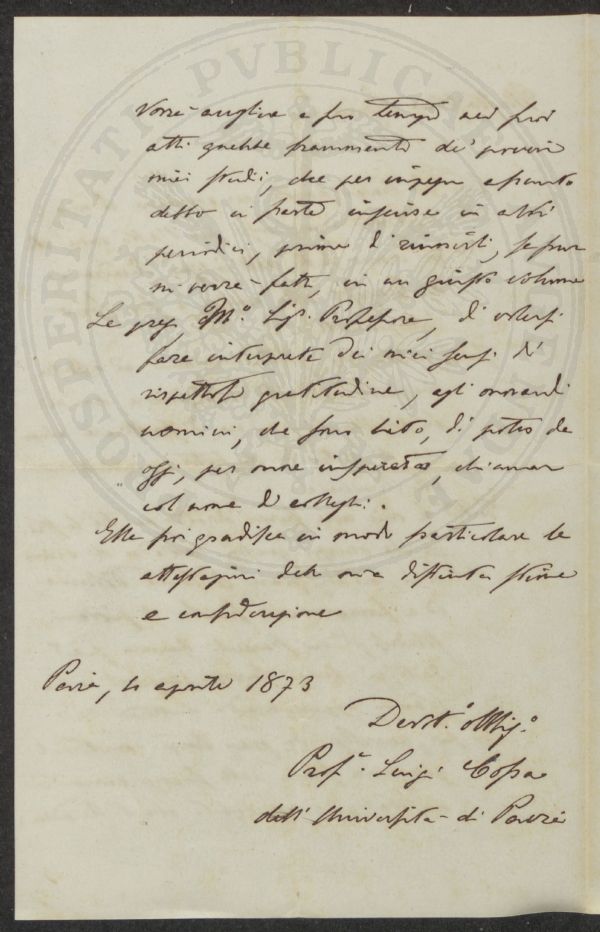 PROSPERITATI PVBLICAE
vorrà accogliere a suo tempo nei suoi
atti qualche frammento de' poveri
miei studi, che per impegni
debbo in parte inserire in altri
periodici, prima di riunirli, se pur
mi verrà fatto, in un giusto volume
La prego M.º Sig. Professore, di volersi
fare interprete dei miei sensi di
rispettosa gratitudine, agli onorandi
uomini, che sono lieto, di poter da
oggi, per onore insperato, chiamar
col nome di colleghi.
Ella poi gradisca in modo particolare le
attestazioni della mia distinta stima
e considerazione
Pavia, 4 aprile 1873
Devot.º Obblig.º
Prof.e Luigi Cossa
dell'Università di Pavia